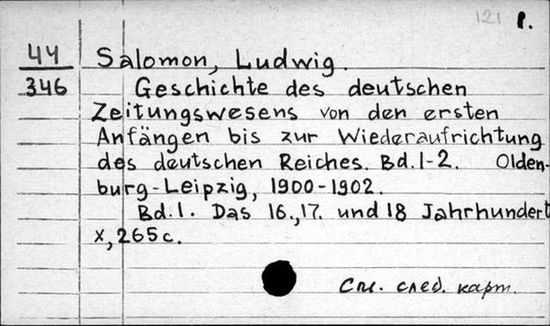 121 р.
44
346
Salomon, Ludwig.
Geschichte des deutschen
Zeitungswesens von den ersten
Anfängen bis zur Wiederaufrichtung
des deutschen Reiches. Bd. 1-2. Olden-
burg-Leipzig, 1900-1902.
Bd. 1. Das 16., 17. und 18 Jahrhundert
X, 265 с.
См. след. карт.